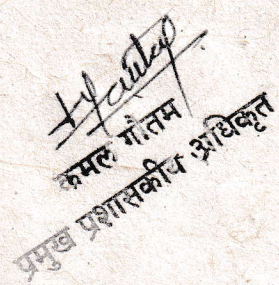 कमल गौतम
प्रमुख प्रशासकीय अधिकृत